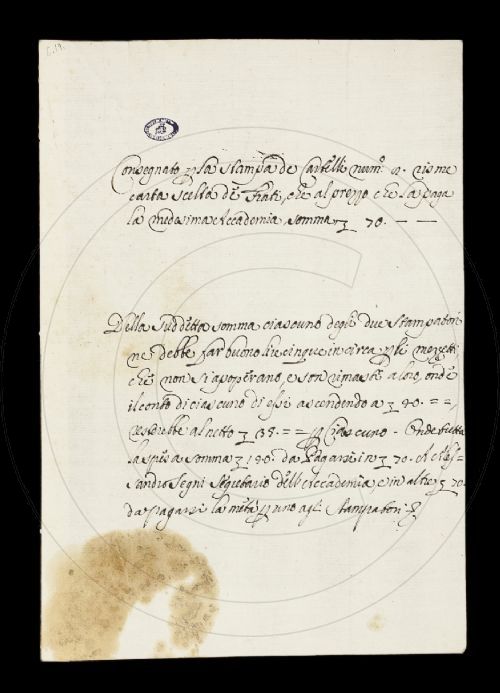 Consegnato p la stampa de Cartelli num.º 2. risme
carta scelta de Frati, che al prezzo che la paga
la medesima Accademia, somma 70. — —
Della suddetta somma ciascuno degli due Stampatori
ne debbe far buono lire cinque in circa p li mezzetti
che non si adoperano, e son rimasti a loro, onde
il conto di ciascuno di essi ascendendo a 40. = =,
resterebbe al netto 35. = = p ciascuno - Onde
la spesa somma 140. da pagarsi in 70. A
Segni Segretario dell'Accademia, e in altre 70.
da pagarsi la metà p uno agli Stampatori